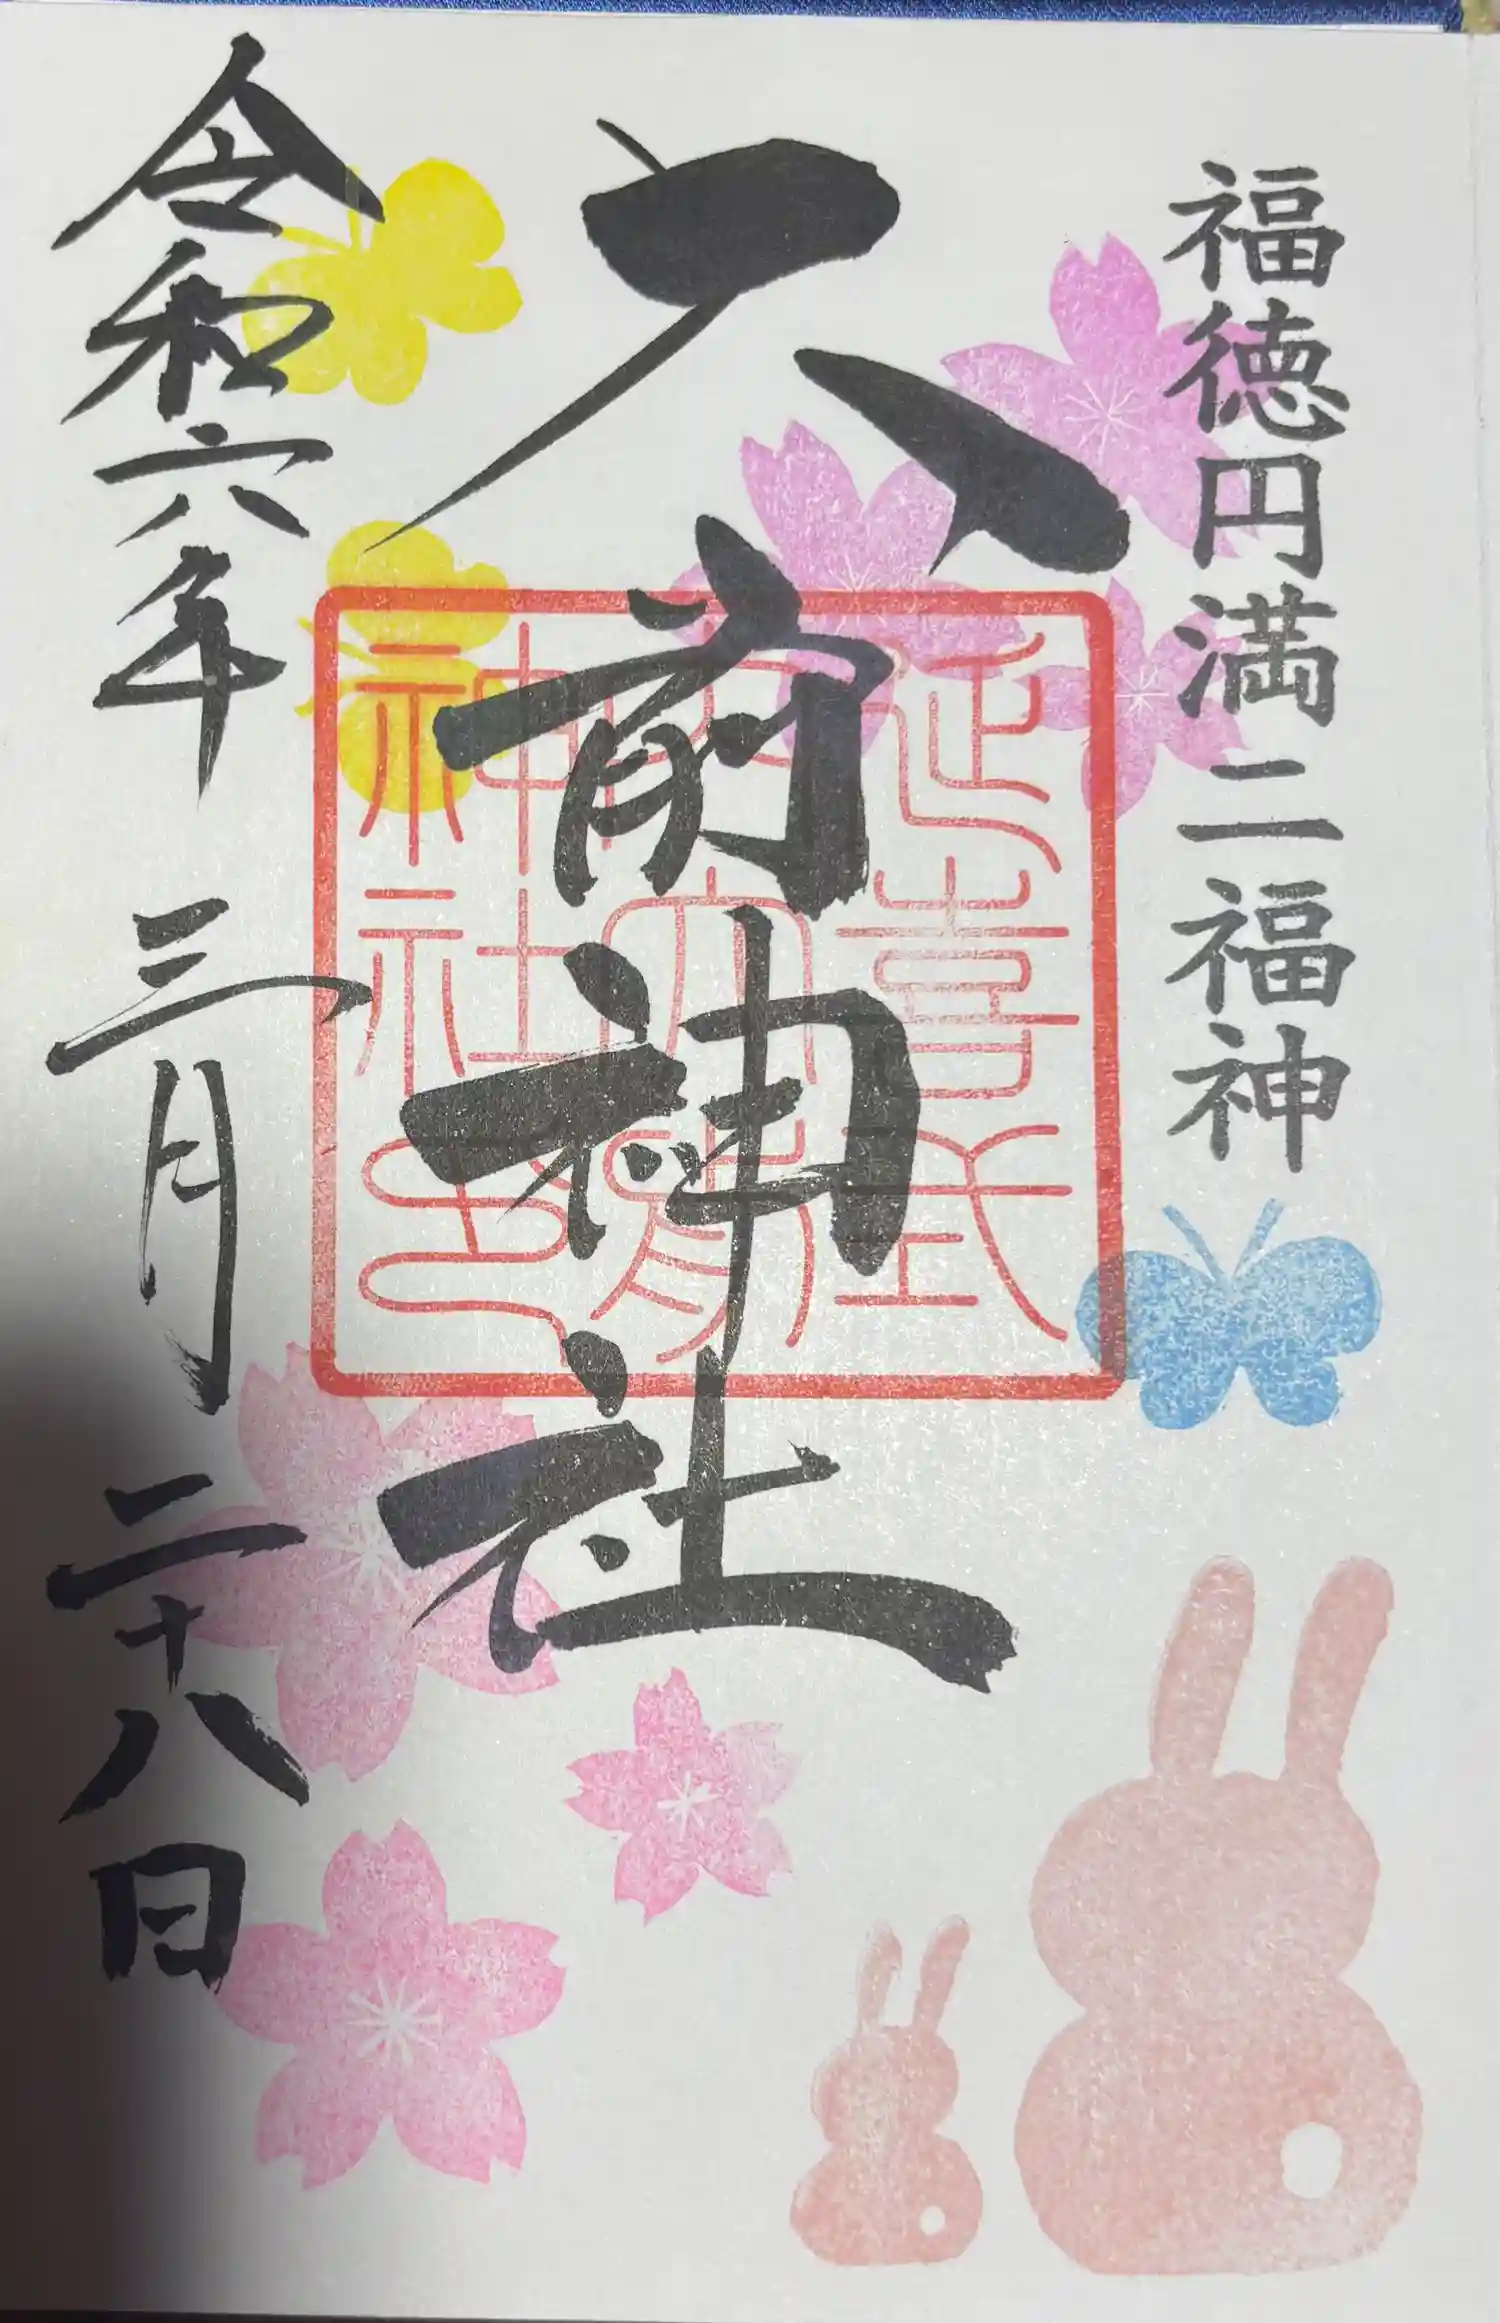 福徳円満二福神
大前神社
延喜式
内大前
神社印
令和六年三月二十八日